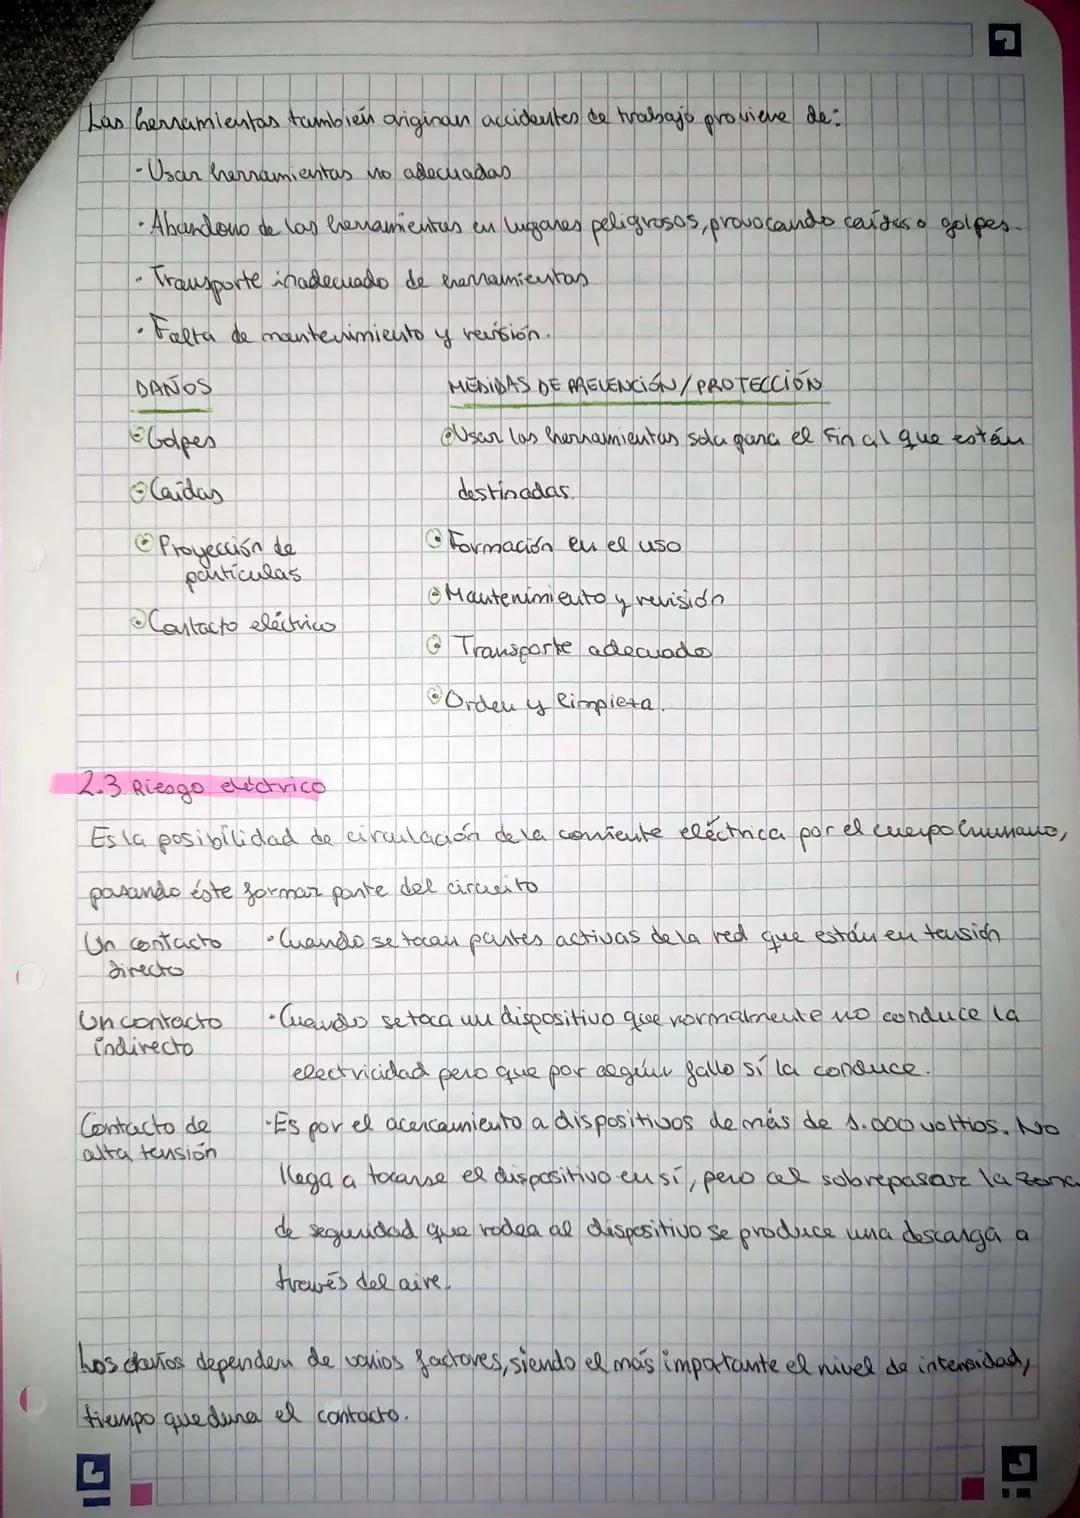 Las herramientas también originan accidentes de trabajo proviene de:
- Usar herramientas no adecuadas
- Abandono de las herramientas en lugares peligrosos, provocando caídas o golpes.
- Transporte inadecuado de herramientas
- Falta de mantenimiento y revisión.
DAÑOS
Golpes
Caídas
Proyección de
partículas
Contacto eléctrico
MEDIDAS DE PREVENCIÓN/PROTECCIÓN
Usar las herramientas solo para el fin al que están
destinadas.
Formación en el uso
Mantenimiento y revisión
Transporte adecuado
Orden y limpieza.
2.3 Riesgo eléctrico
Es la posibilidad de circulación de la corriente eléctrica por el cuerpo humano,
pasando éste formar parte del circuito
Un contacto directo
· Cuando se tocan partes activas de la red que están en tensión
Un contacto indirecto
· Cuando se toca un dispositivo que normalmente no conduce la
electricidad pero que por algún fallo sí la conduce.
Contacto de alta tensión
· Es por el acercamiento a dispositivos de más de 1.000 voltios. No
llega a tocarse el dispositivo en sí, pero al sobrepasar la zona
de seguridad que rodea al dispositivo se produce una descarga a
través del aire.
Los daños dependen de varios factores, siendo el más importante el nivel de intensidad,
tiempo que dura el contacto.